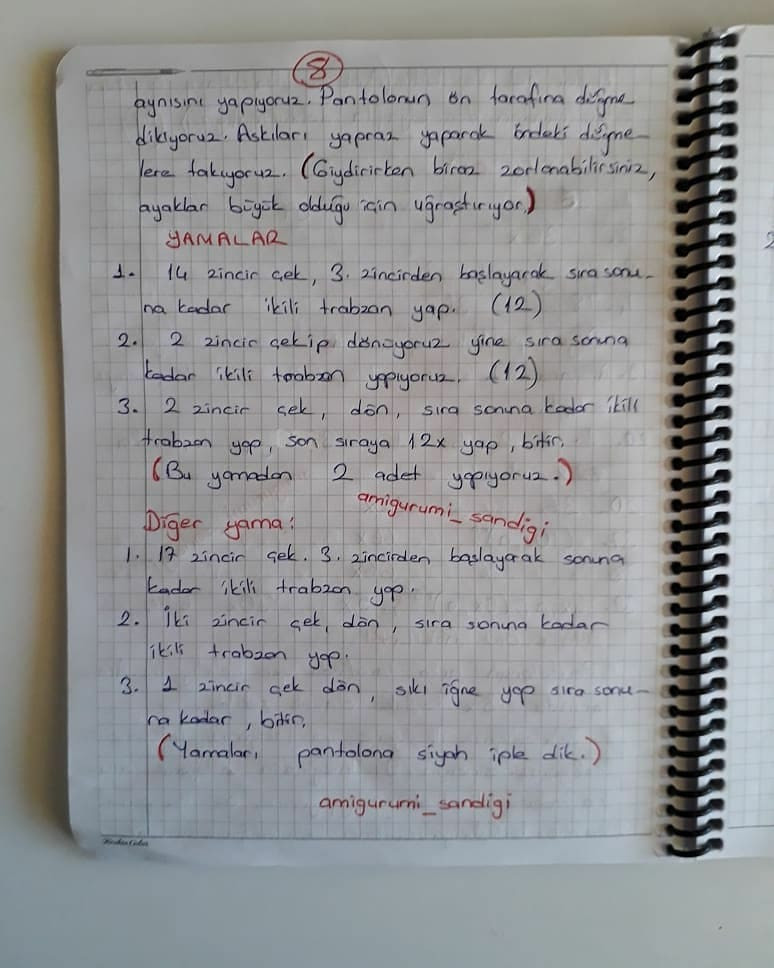 8
aynısını yapıyoruz. Pantolonun ön tarafına düğme
dikiyoruz. Askıları çapraz yaparak öndeki düğme-
lere takıyoruz. (Giydirirken biraz zorlanabilirsiniz,
ayaklar büyük olduğu için uğraştırıyor.)
YAMALAR
1. 14 zincir çek, 3. zincirden başlayarak sıra sonu-
na kadar ikili trabzan yap. (12)
2. 2 zincir çekip dönüyoruz yine sıra sonuna
kadar ikili trabzan yapıyoruz. (12)
3. 2 zincir çek, dön, sıra sonuna kadar ikili
trabzan yap, son sıraya 12x yap, bitir.
(Bu yamadan 2 adet yapıyoruz.)
amigurumi_sandigi
Diğer yama:
1. 17 zincir çek. 3. zincirden başlayarak sonuna
kadar ikili trabzan yap.
2. İki zincir çek, dön, sıra sonuna kadar
ikili trabzan yap.
3. 1 zincir çek dön, sıkı iğne yap sıra sonu-
na kadar, bitir.
(Yamaları pantolona siyah iple dik.)
amigurumi_sandigi
2